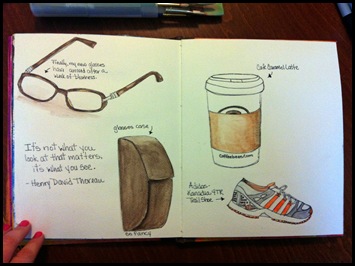 Finally, my new glasses
have arrived after a
week of blindness.
It's not what you
look at that matters,
it's what you see.
- Henry David Thoreau
glasses case
so fancy
Cafe Caramel Latte
Coffeebean.com
Adidas
Kanadia 4TR
Trail Shoe